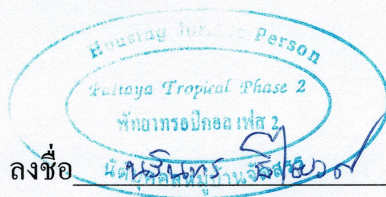 Housing Juristic Person
Pattaya Tropical Phase 2
พัทยาทรอปิคอล เฟส 2
นิติบุคคลหมู่บ้านจัดสรร
ลงชื่อ นรินทร